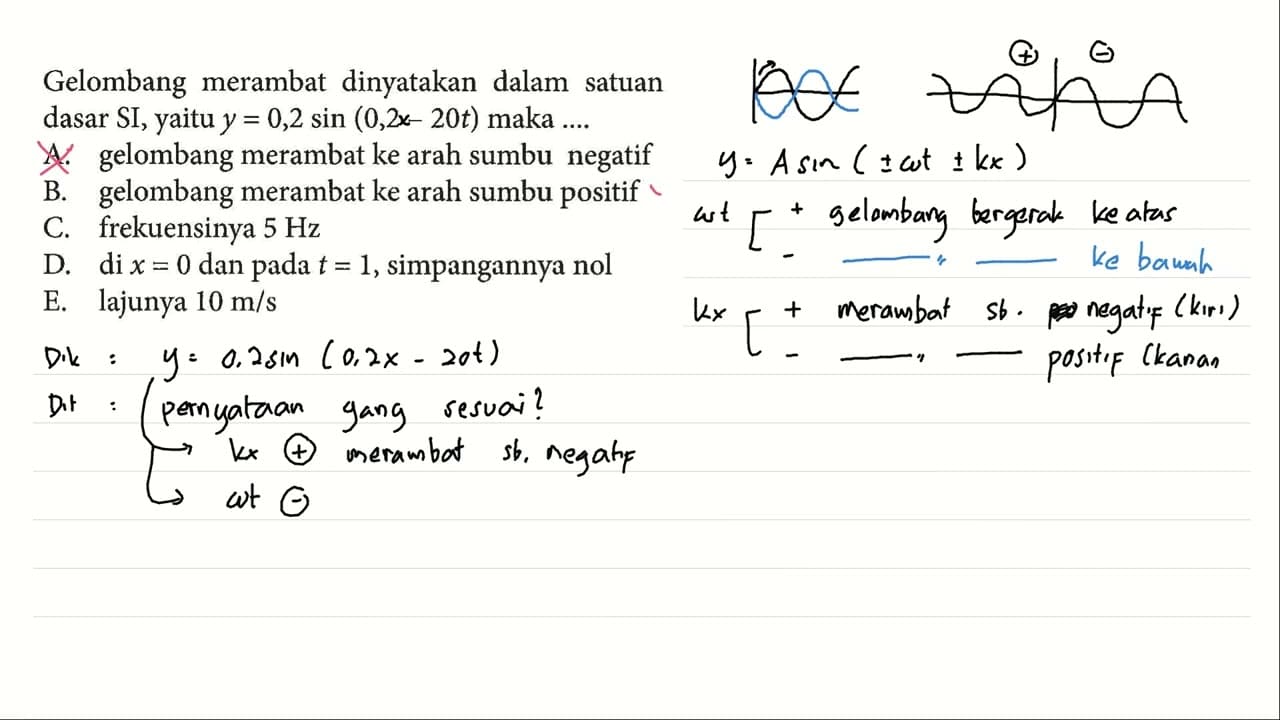 Gelombang merambat dinyatakan dalam satuan
dasar SI, yaitu y = 0,2 sin (0,2x– 20t) maka ....
A. gelombang merambat ke arah sumbu negatif
B. gelombang merambat ke arah sumbu positif
C. frekuensinya 5 Hz
D. di x = 0 dan pada t = 1, simpangannya nol
E. lajunya 10 m/s
Dik : y = 0,2 sin (0,2x - 20t)
Dit : pernyataan yang sesuai?
kx + merambat sb. negatif
ωt -
+ -
y = A sin ( ± ωt ± kx )
ωt + gelombang bergerak ke atas
- —— " —— ke bawah
kx + merambat sb. negatif (kiri)
- —— " —— positif (kanan